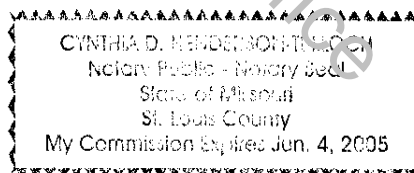 CYNTHIA D. HENDERSON-TULLOCH
Notary Public - Notary Seal
State of Missouri
St. Louis County
My Commission Expires Jun. 4, 2005